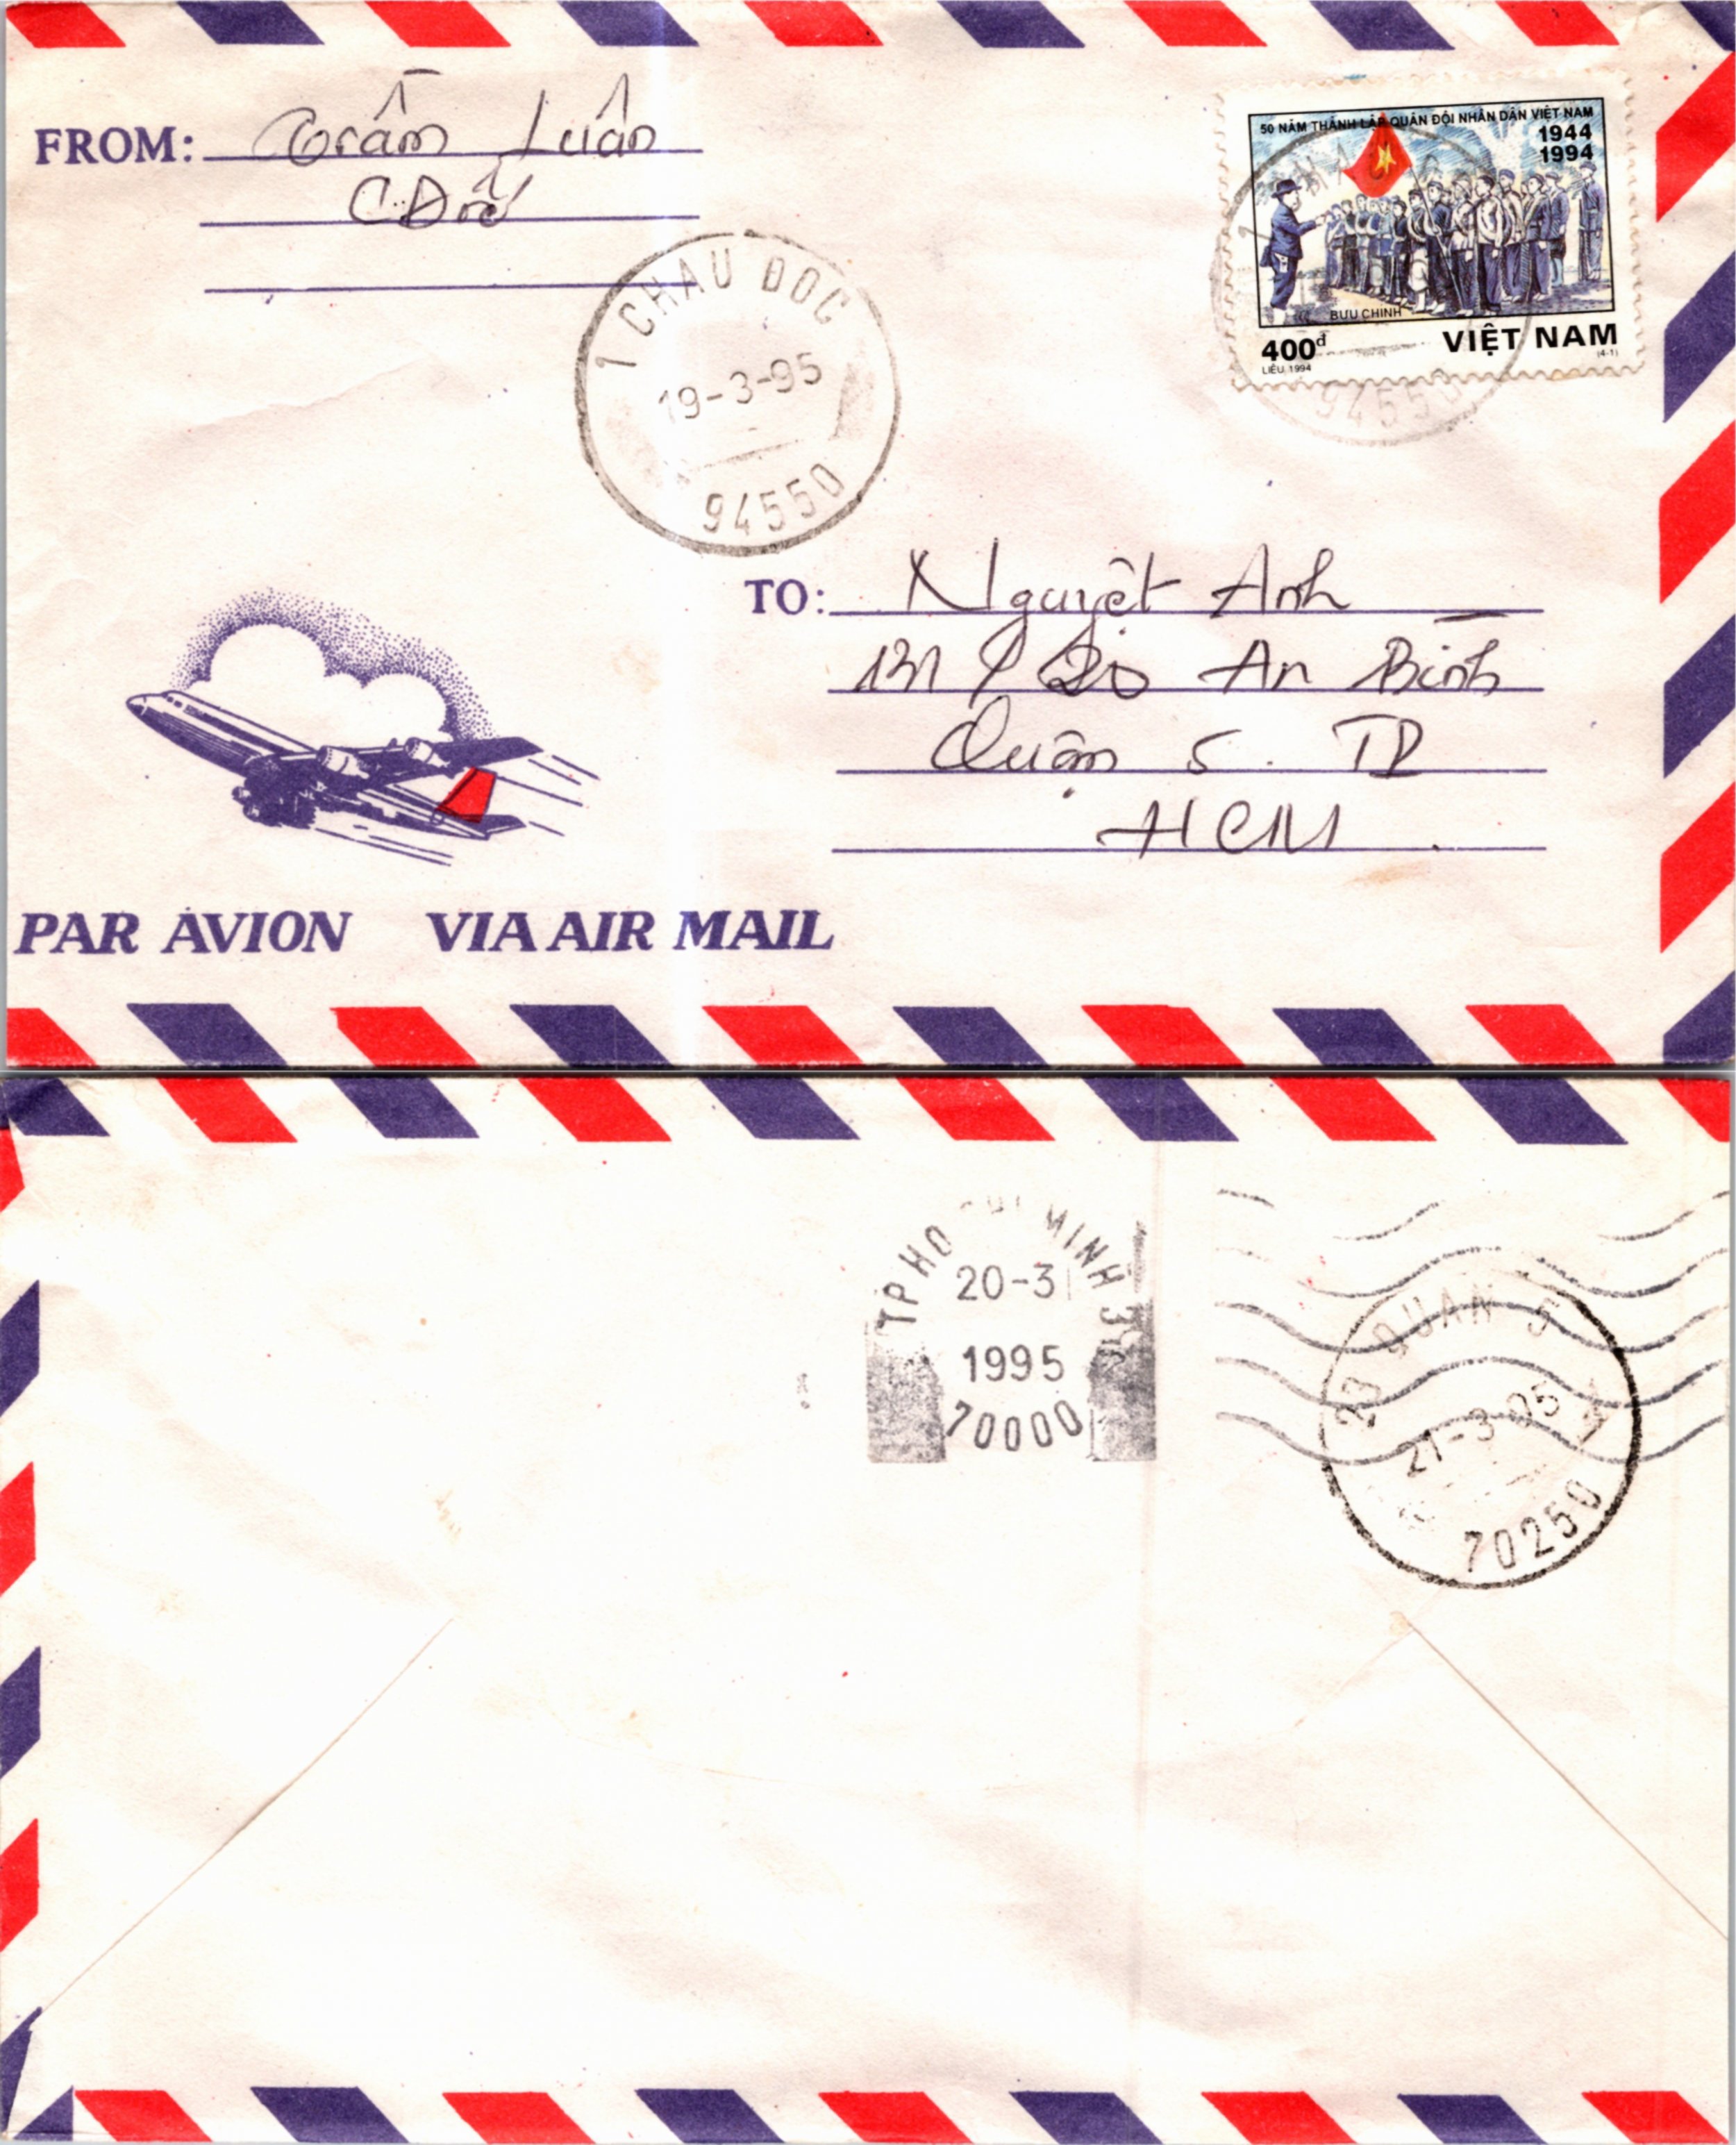 FROM: Trần Luân
CĐốc
50 NĂM THÀNH LẬP QUÂN ĐỘI NHÂN DÂN VIỆT NAM
1944
1994
BƯU CHÍNH
400đ VIỆT NAM
LIÊU. 1994 (4-1)
1 CHAU DOC
19-3-95
94550
94550
TO: Nguyệt Anh
An Bình
Quận 5. TP
HCM.
PAR AVION VIA AIR MAIL
TP HO CHI MINH
20-3
1995
70000
23 QUAN 5
21-3-95
70250